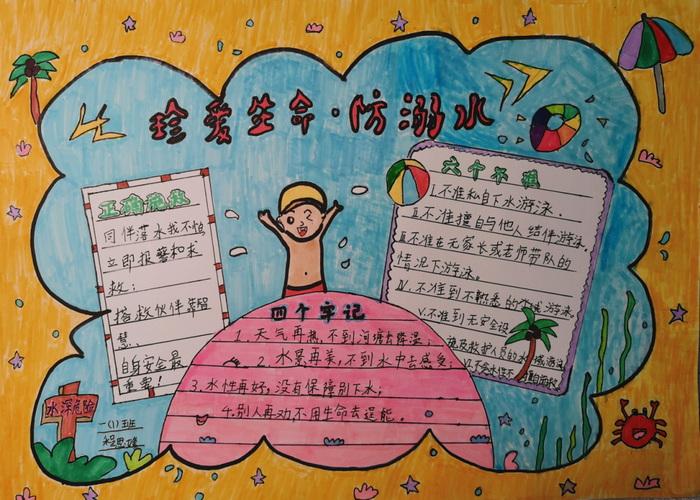 珍爱生命·防溺水
正确施救
同伴落水我不怕
立即报警和求
救:
搭救伙伴靠智
慧:
自身安全最
重要!
六个不准
I.不准私自下水游泳.
II.不准擅自与他人结伴游泳.
III.不准在无家长或老师带队的
情况下游泳。
IV.不准到不熟悉的水域游泳
V.不准到无安全设
施及救护人员的水域游泳
VI.不会水性不
四个牢记
1.天气再热,不到河塘去降温;
2.水景再美,不到水中去感受;
3.水性再好,没有保障别下水;
4.别人再劝不用生命去逞能.
水深危险
一(1)班